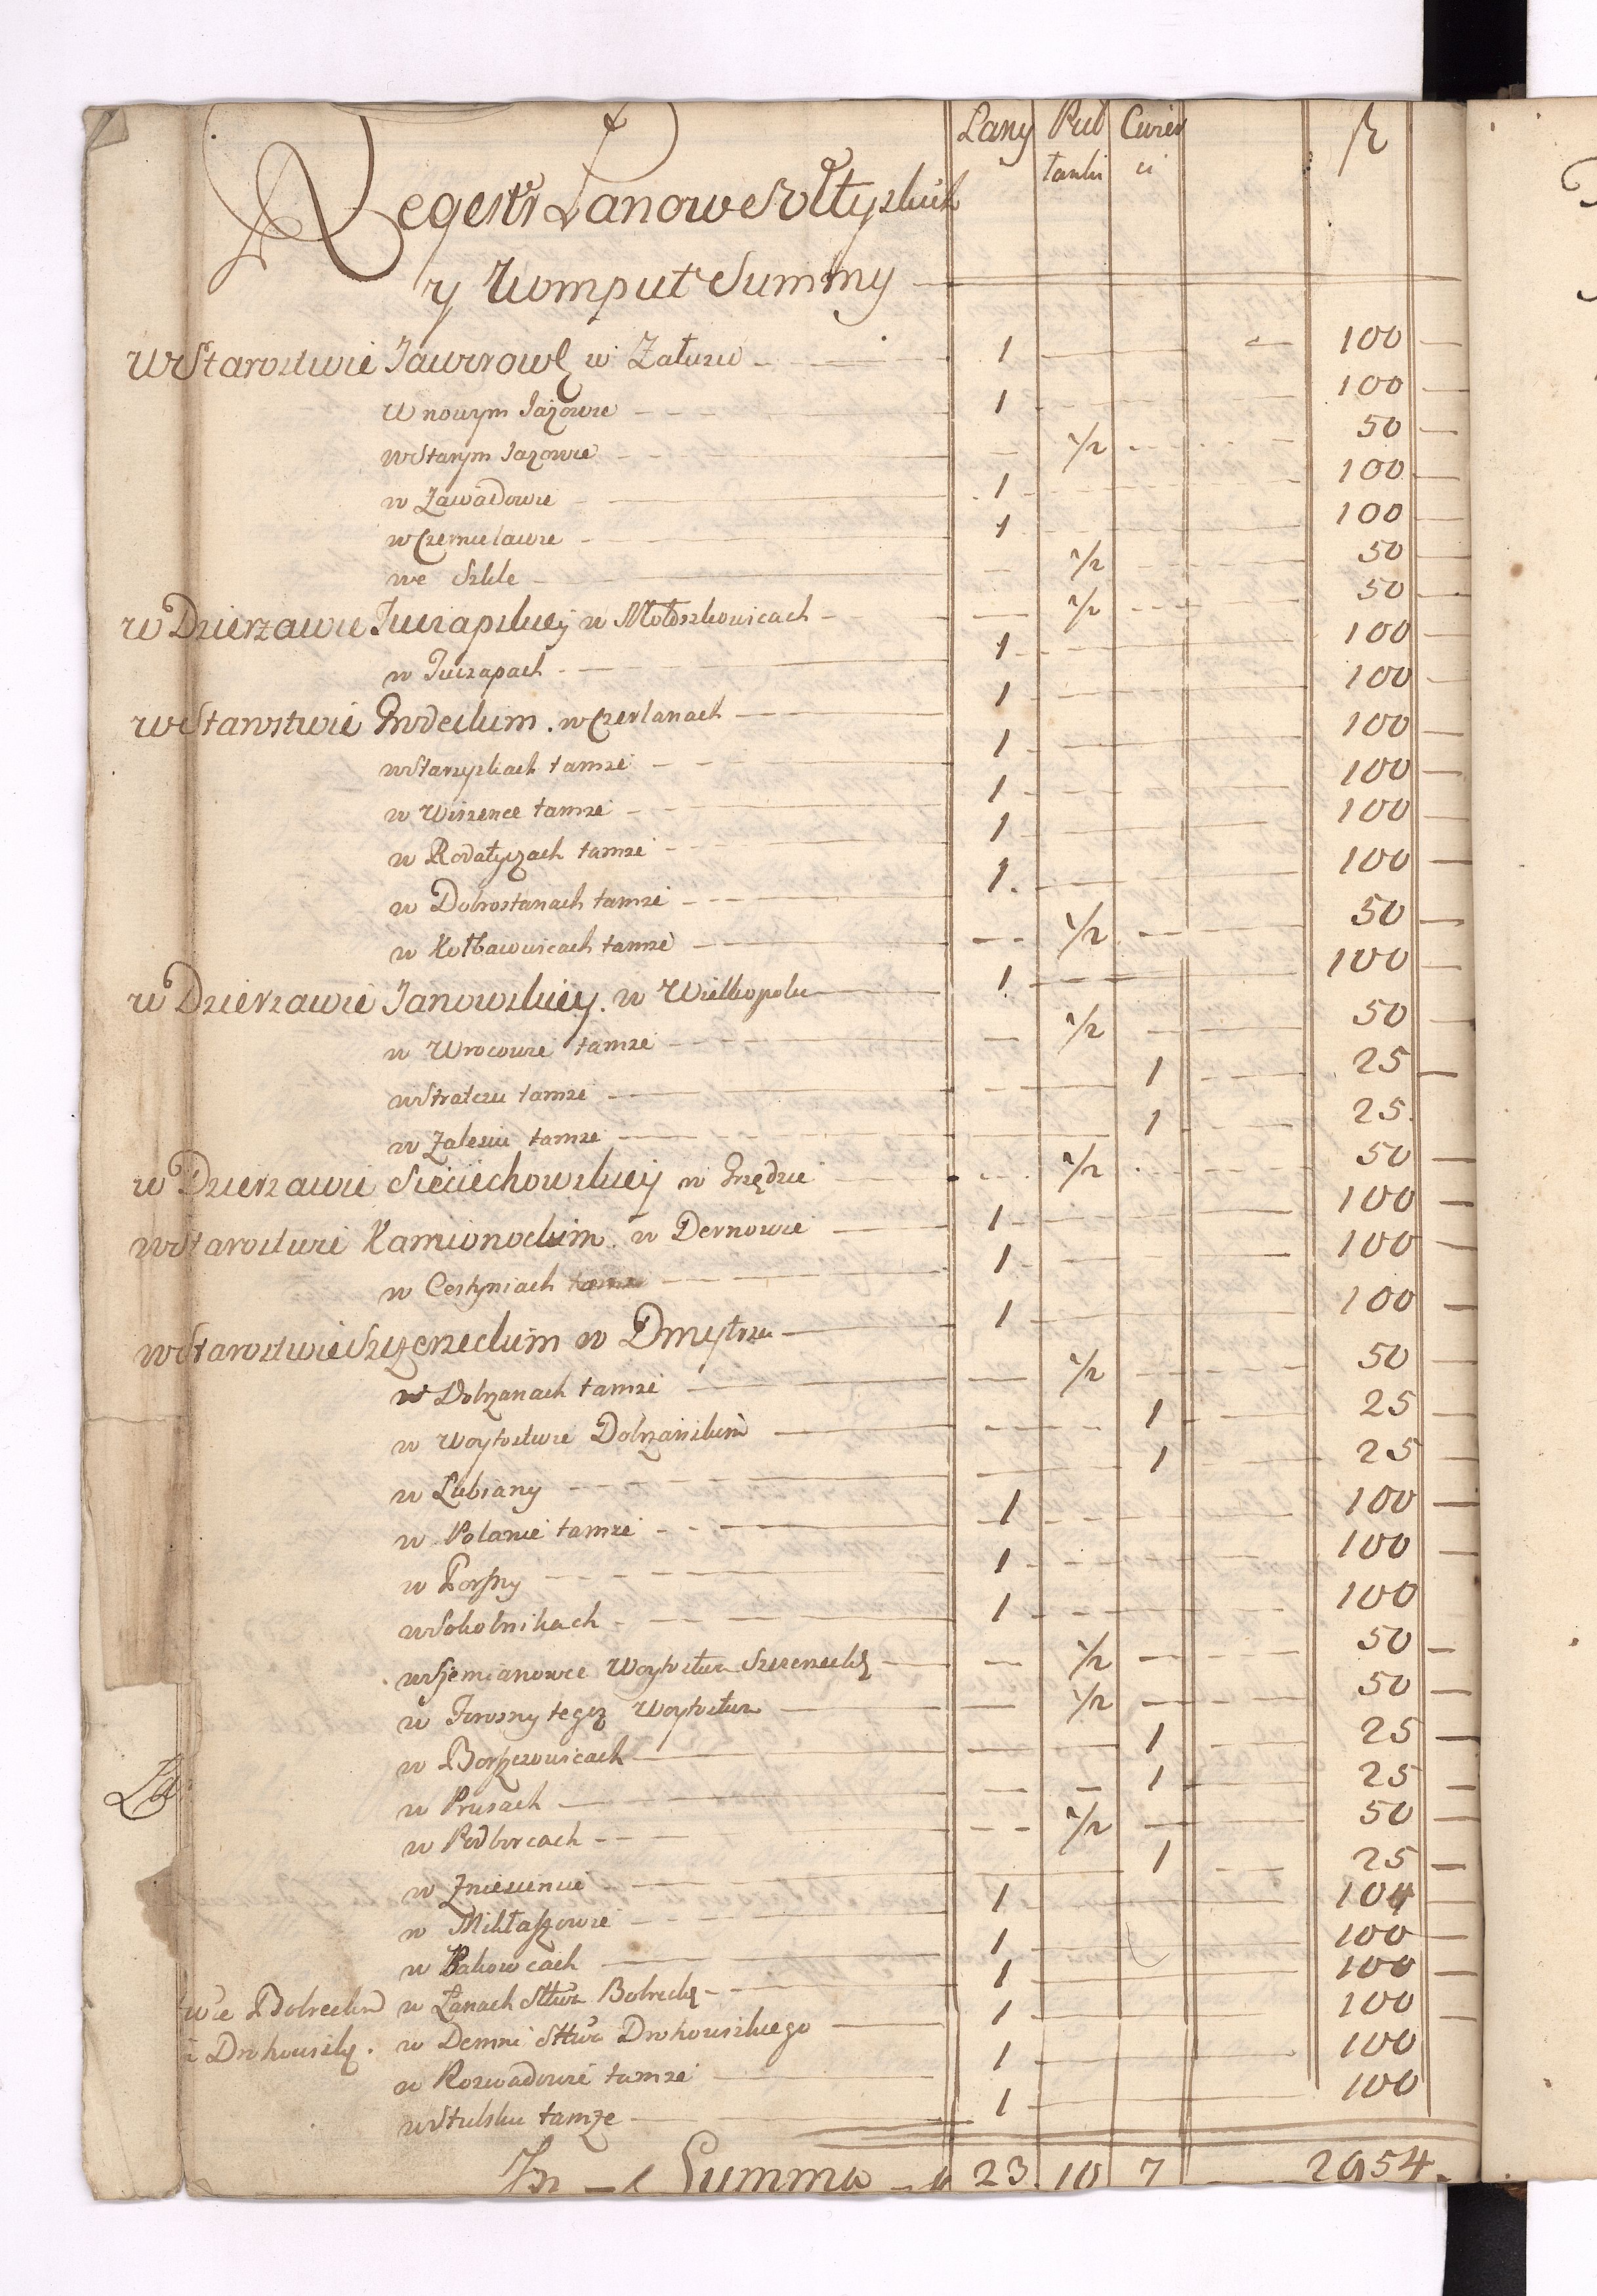 Lany Puł Cwier
łanki ci
Regestr Łanow Sołtyskich
y Komput Summy
W Starostwie Jaworowſ w Załużu 1 100
W nowym Jazowie 1 100
w Starym Jazowie 1/2 50
w Zawadowie 1 100
w Czerniławie 1 100
we Szkle 1/2 50
w Dzierzawie Tuczapskiey w Mołoszkowicach 1/2 50
w Tuczapach 1 100
w Starostwie Grodeckim. w Czerlanach 1 100
w Starzyskach tamże 1 100
w Wiszence tamże 1 100
w Rodatyczach tamże 1 100
w Dobrostanach tamże 1. 100
w Kołbaiowicach tamże 1/2 50
w Dzierzawie Janowskiey. w Wielkopolu 1 100
w Wrocowie tamże 1/2 50
w Stralczu tamże 1 25
w Zalesiu tamże 1 25.
w Dzierzawie Sieciechowskiey w Grzędzie 1/2 50
w Starostwie Kamionockim. w Dernowie 1 100
w Cestyniach tamże 1 100
w Starostwie Szczerzeckim w Dmytrzu 1 100
w Dobrzanach tamże 1/2 50
w Woytostwie Dobrzańskim 1 25
w Lubiany 1 25
w Polanie tamże 1 100
w Porszny 1 100
w Sokolnikach 1 100
w Siemianowce Woytostwa Szczerzeckſ 1/2 50
w Torosny tegoż Woytostwa 1/2 50
w Borszczowicach 1 25
w Prusach 1 25
w Podborcach 1/2 50
w Zniesieniu 1 25
w Mikłaszowie 1 104
w Pakowcach 1 100
we Bobreckim w Łanach Sttwa Bobreckſ 1 100
i Drohowiskſ. w Demni Sttwa Drohowiskiego 1 100
w Rozwadowie tamże 1 100
w Stulsku tamże 1 100
La
Summa 23 10 7 2954.